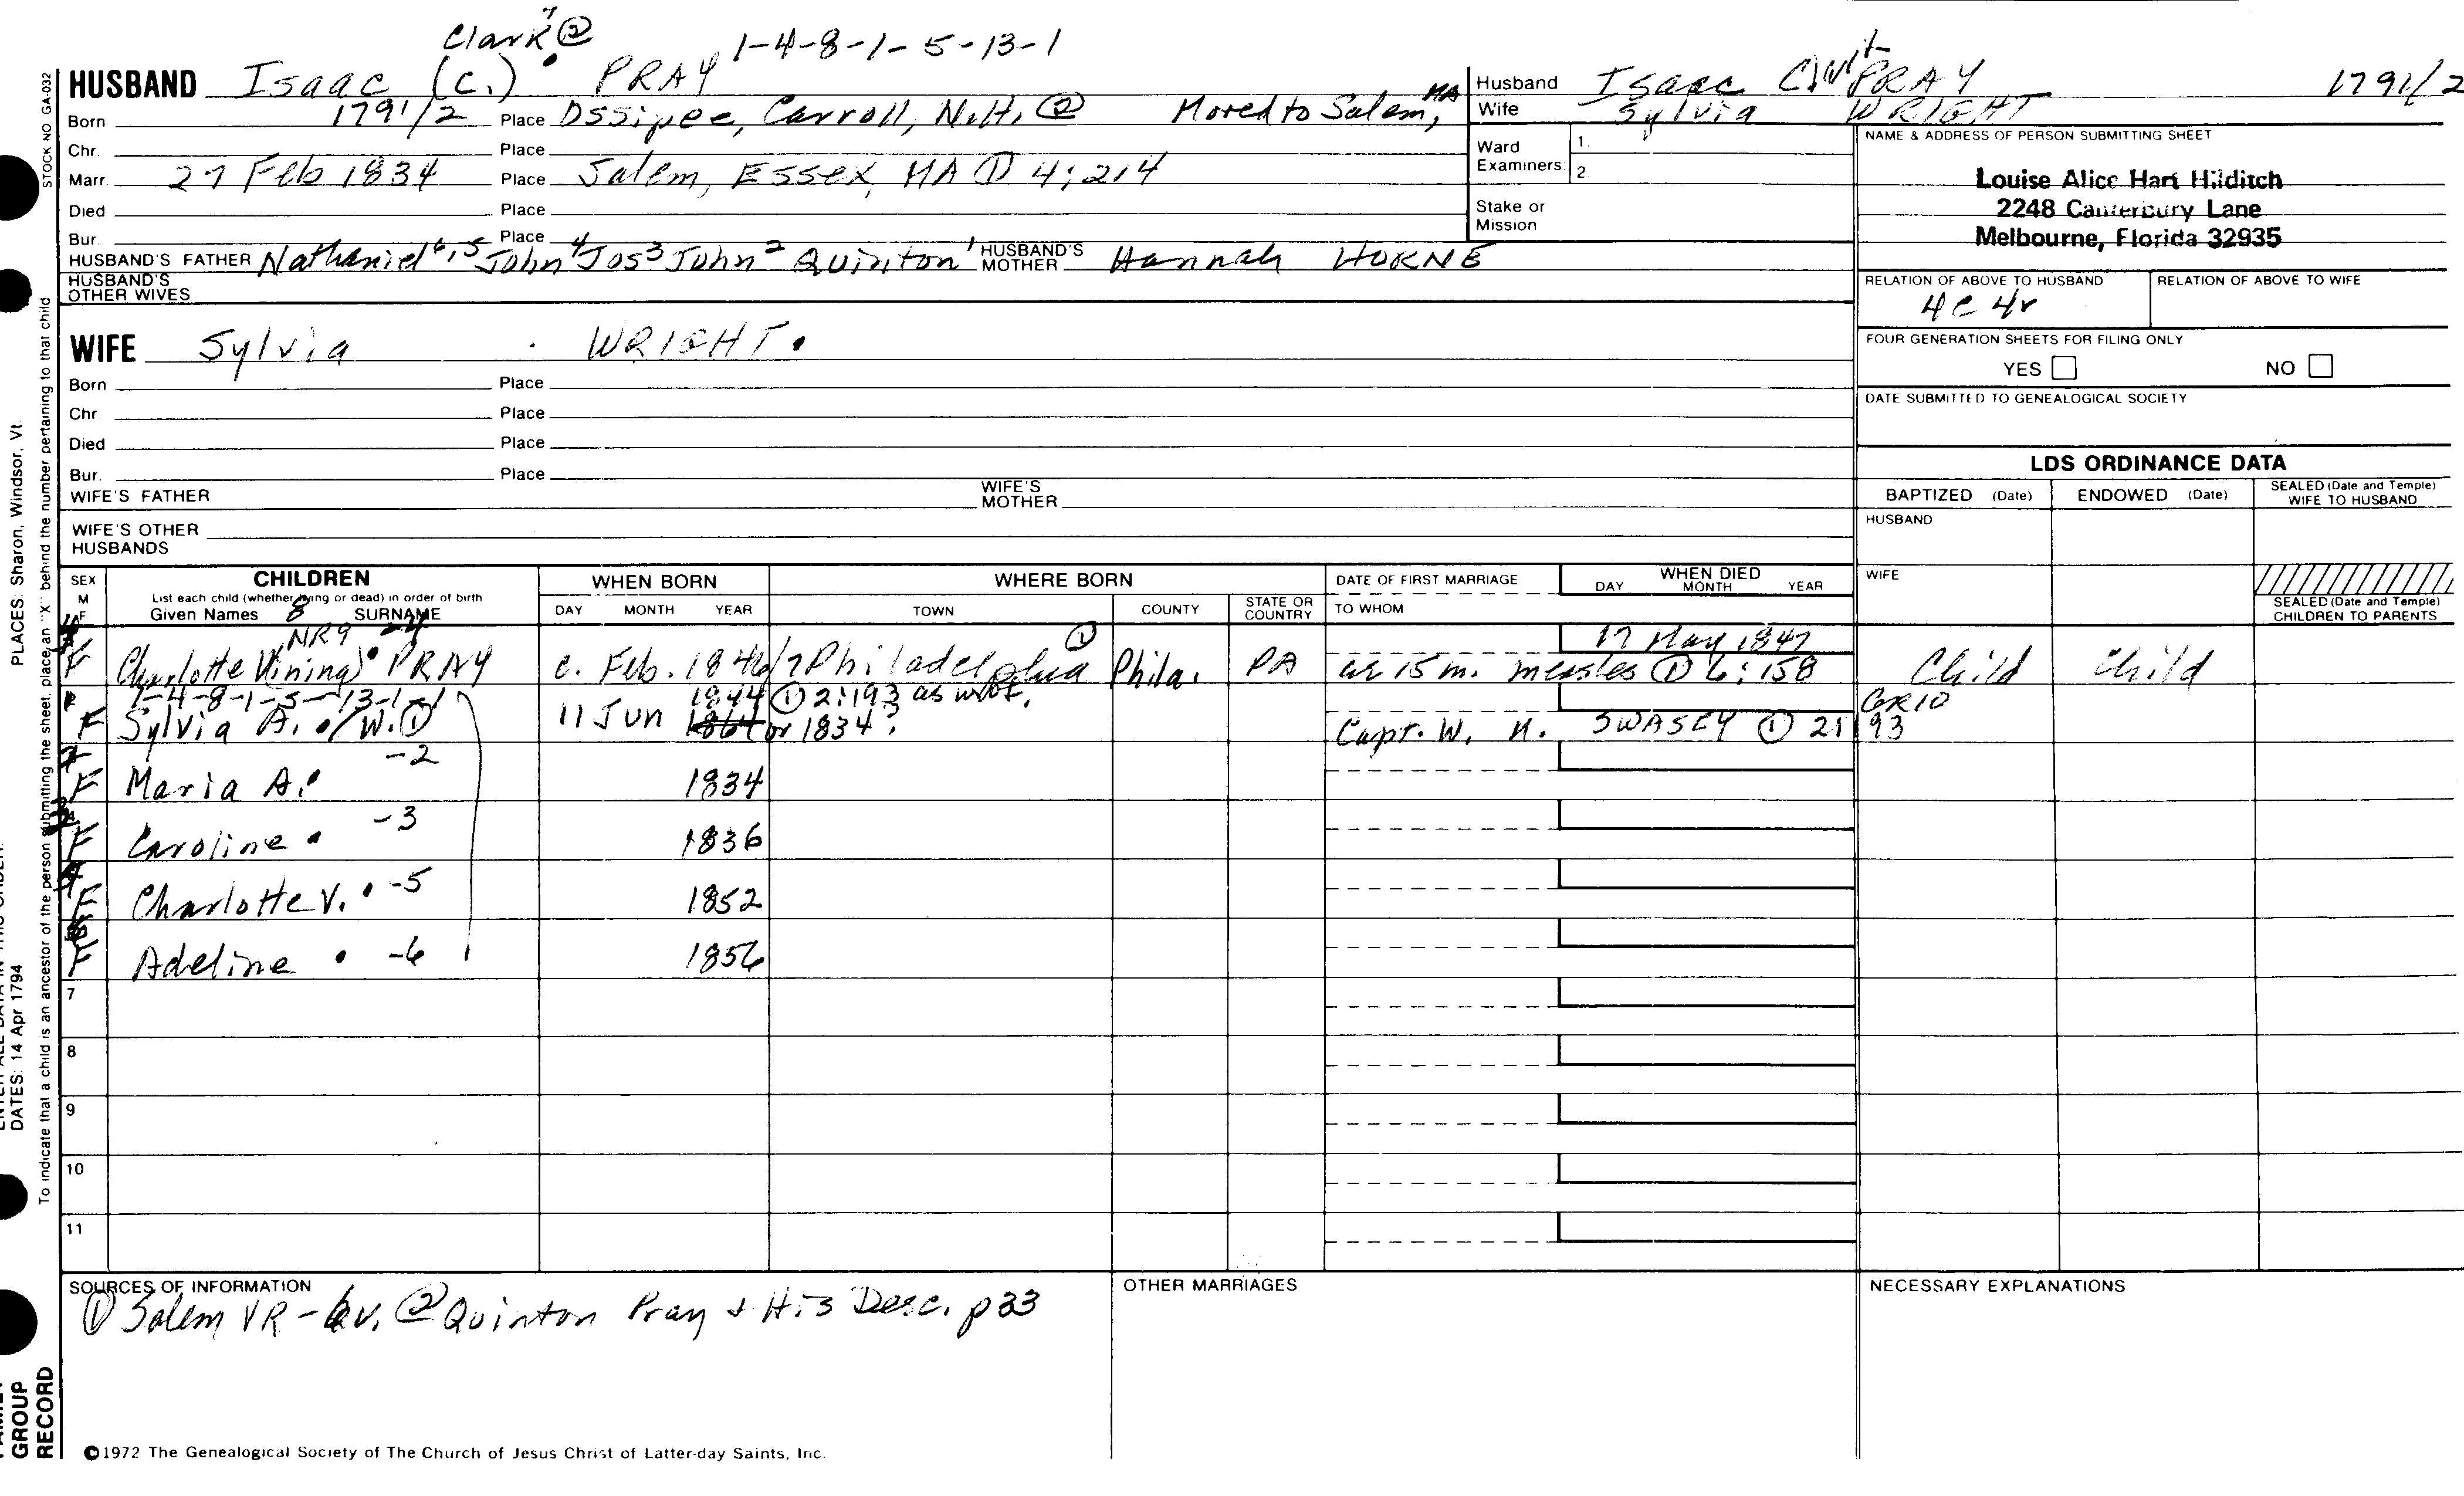 Clark 7 ②
HUSBAND Isaac (C.) PRAY 1-4-8-1-5-13-1
Born 1791/2 Place Ossipee, Carroll, N.H. ② Moved to Salem, MA
Chr. Place
Marr. 27 Feb 1834 Place Salem, Essex, MA ① 4:214
Died Place
Bur. Place
HUSBAND'S FATHER Nathaniel 6,5 John 4 Jos 3 John 2 Quinton 1 HUSBAND'S MOTHER Hannah HORNE
HUSBAND'S OTHER WIVES
Husband Isaac PRAY 1791/2
Wife Sylvia WRIGHT
Ward Examiners: 1. 2.
Stake or Mission
NAME & ADDRESS OF PERSON SUBMITTING SHEET
Louise Alice Hart Hilditch
2248 Canterbury Lane
Melbourne, Florida 32935
RELATION OF ABOVE TO HUSBAND RELATION OF ABOVE TO WIFE
4c 4r
FOUR GENERATION SHEETS FOR FILING ONLY
YES NO
DATE SUBMITTED TO GENEALOGICAL SOCIETY
WIFE Sylvia WRIGHT.
Born Place
Chr. Place
Died Place
Bur. Place
WIFE'S FATHER WIFE'S MOTHER
WIFE'S OTHER HUSBANDS
LDS ORDINANCE DATA
BAPTIZED (Date) ENDOWED (Date) SEALED (Date and Temple) WIFE TO HUSBAND
HUSBAND
WIFE
SEALED (Date and Temple) CHILDREN TO PARENTS
SEX M F CHILDREN WHEN BORN WHERE BORN DATE OF FIRST MARRIAGE WHEN DIED
List each child (whether living or dead) in order of birth
Given Names 8 SURNAME DAY MONTH YEAR TOWN COUNTY STATE OR COUNTRY TO WHOM DAY MONTH YEAR
NR9 -4 ① 17 May 1847
F Charlotte Vining PRAY c. Feb. 1846/7 Philadelphia Phila. PA ae 15 m. measles ① 6:158 Child Child
1-4-8-1-5-13-1-1 1844 ① 2:193 as
F Sylvia A./W. ① 11 Jun 1864 or 1834? Capt. W. H. SWASEY ① 2:193
F Maria A. -2 1834
F Caroline -3 1836
F Charlotte V. -5 1852
F Adeline -6 1856
7
8
9
10
11
SOURCES OF INFORMATION OTHER MARRIAGES NECESSARY EXPLANATIONS
① Salem VR - 6v. ② Quinton Pray & His Desc. p33
©1972 The Genealogical Society of The Church of Jesus Christ of Latter-day Saints, Inc.
STOCK NO GA-032
To indicate that a child is an ancestor of the person submitting the sheet, place an "X" behind the number pertaining to that child
PLACES: Sharon, Windsor, Vt.
DATES: 14 Apr 1794
GROUP
RECORD